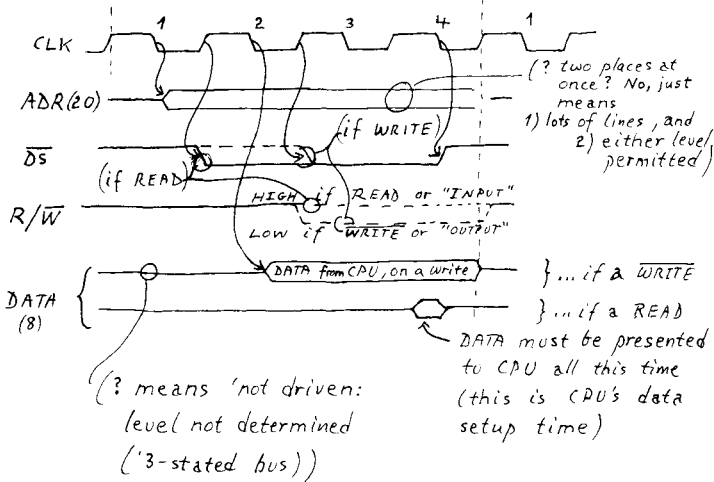 1 2 3 4 1
CLK
(? two places at
once? No, just
means
1) lots of lines, and
2) either level
permitted)
ADR(20)
(if WRITE)
DS
(if READ)
HIGH if READ or "INPUT"
R/W
LOW if WRITE or "OUTPUT"
DATA from CPU, on a write
}... if a WRITE
DATA
(8)
}... if a READ
DATA must be presented
to CPU all this time
(this is CPU's data
setup time)
(? means 'not driven:
level not determined
('3-stated bus))